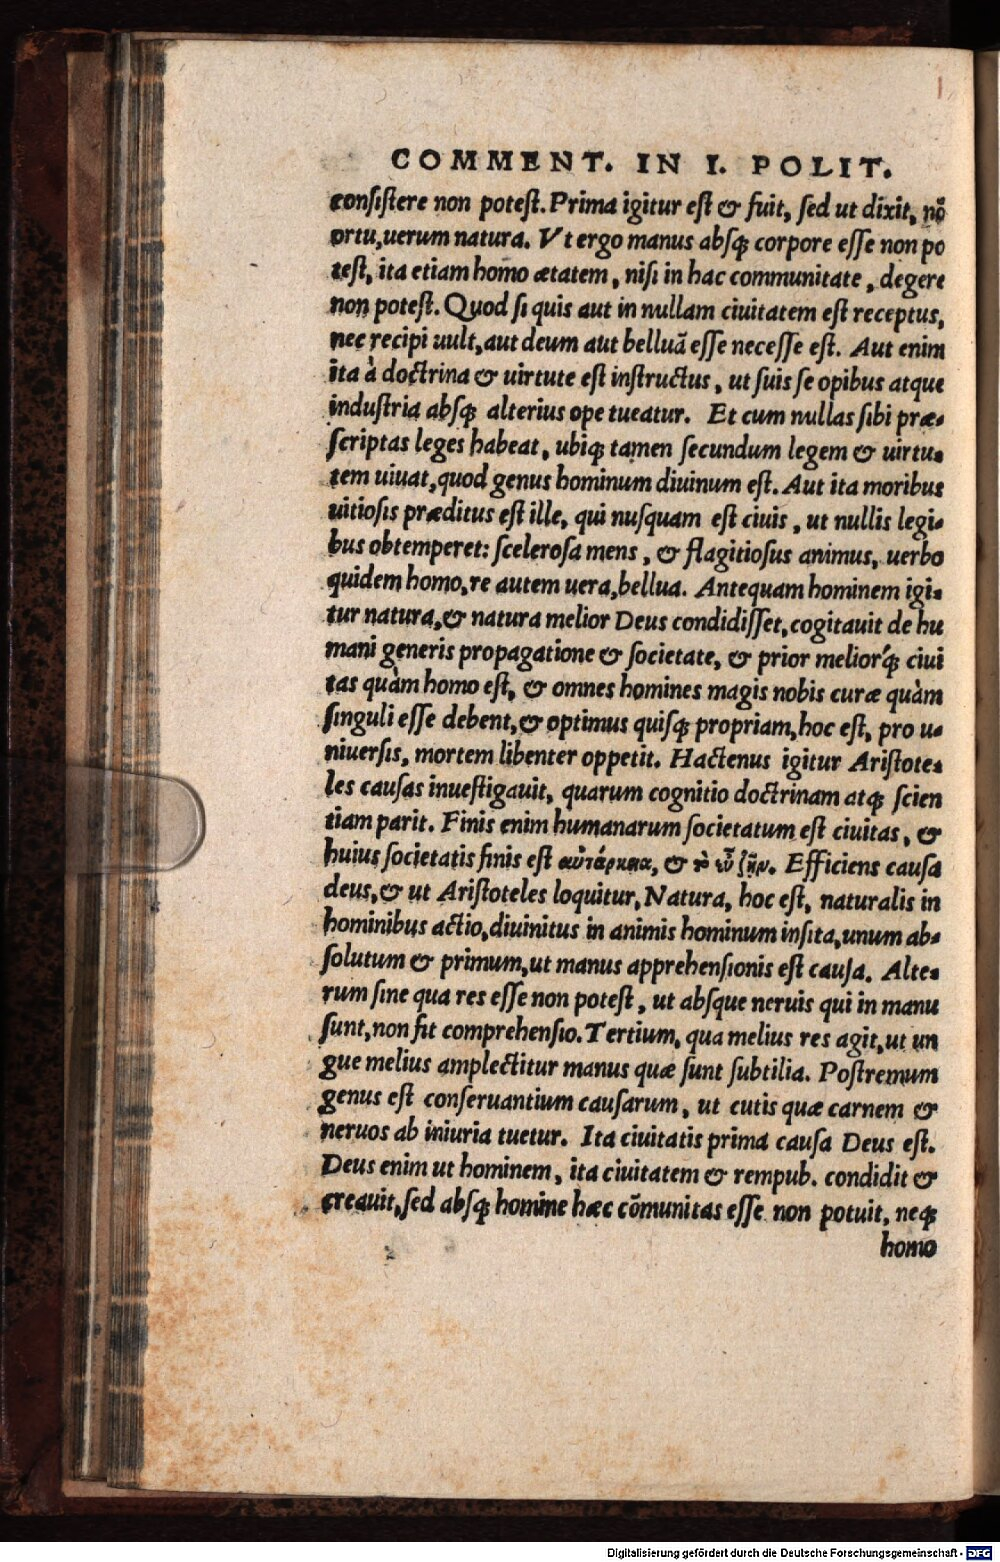 COMMENT. IN I. POLIT.
consistere non potest. Prima igitur est & fuit, sed ut dixit, nō
ortu, uerum natura. Vt ergo manus absq; corpore esse non po
test, ita etiam homo ætatem, nisi in hac communitate, degere
non potest. Quod si quis aut in nullam ciuitatem est receptus,
nec recipi uult, aut deum aut belluā esse necesse est. Aut enim
ita à doctrina & uirtute est instructus, ut suis se opibus atque
industria absq; alterius ope tueatur. Et cum nullas sibi præ-
scriptas leges habeat, ubiq; tamen secundum legem & uirtu-
tem uiuat, quod genus hominum diuinum est. Aut ita moribus
uitiosis præditus est ille, qui nusquam est ciuis, ut nullis legi-
bus obtemperet: scelerosa mens, & flagitiosus animus, uerbo
quidem homo, re autem uera, bellua. Antequam hominem igi-
tur natura, & natura melior Deus condidisset, cogitauit de hu
mani generis propagatione & societate, & prior melior'q; ciui
tas quàm homo est, & omnes homines magis nobis curæ quàm
singuli esse debent, & optimus quisq; propriam, hoc est, pro u-
niuersis, mortem libenter oppetit. Hactenus igitur Aristote-
les causas inuestigauit, quarum cognitio doctrinam atq; scien
tiam parit. Finis enim humanarum societatum est ciuitas, &
huius societatis finis est αὐτάρκεια, & τὸ εὖ ζῆν. Efficiens causa
deus, & ut Aristoteles loquitur, Natura, hoc est, naturalis in
hominibus actio, diuinitus in animis hominum insita, unum ab-
solutum & primum, ut manus apprehensionis est causa. Alte-
rum sine qua res esse non potest, ut absque neruis qui in manu
sunt, non fit comprehensio. Tertium, qua melius res agit, ut un
gue melius amplectitur manus quæ sunt subtilia. Postremum
genus est conseruantium causarum, ut cutis quæ carnem &
neruos ab iniuria tuetur. Ita ciuitatis prima causa Deus est.
Deus enim ut hominem, ita ciuitatem & rempub. condidit &
creauit, sed absq; homine hæc cōmunitas esse non potuit, neq;
homo
Digitalisierung gefördert durch die Deutsche Forschungsgemeinschaft - DFG